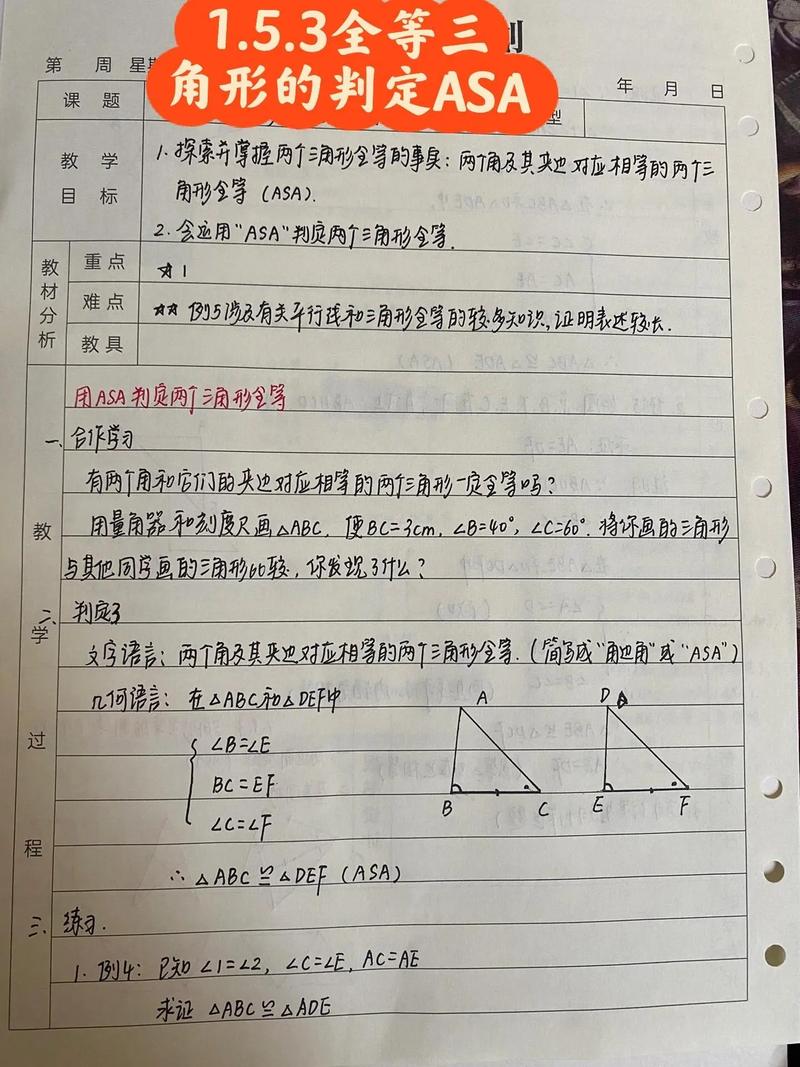 1.5.3全等三
角形的判定ASA
第 周 星期
年 月 日
课 题
型
教 学
目 标
1. 探索并掌握两个三角形全等的事实：两个角及其夹边对应相等的两个三
角形全等（ASA）.
2. 会应用"ASA"判定两个三角形全等.
教材分析
重 点
☆1
难 点
☆☆ 例5涉及有关平行线和三角形全等的较多知识，证明表述较长.
教 具
教 学 过 程
用ASA判定两个三角形全等
一、合作学习
有两个角和它们的夹边对应相等的两个三角形一定全等吗？
用量角器和刻度尺画△ABC，使BC=3cm，∠B=40°，∠C=60°. 将你画的三角形
与其他同学画的三角形比较，你发现了什么？
二、判定3
文字语言：两个角及其夹边对应相等的两个三角形全等.（简写成"角边角"或"ASA"）
几何语言：在△ABC和△DEF中
∠B=∠E
BC=EF
∠C=∠F
∴ △ABC≌△DEF（ASA）
A
B
C
D
E
F
三、练习.
1. 例4：已知 ∠1=∠2，∠C=∠E，AC=AE
求证 △ABC≌△ADE